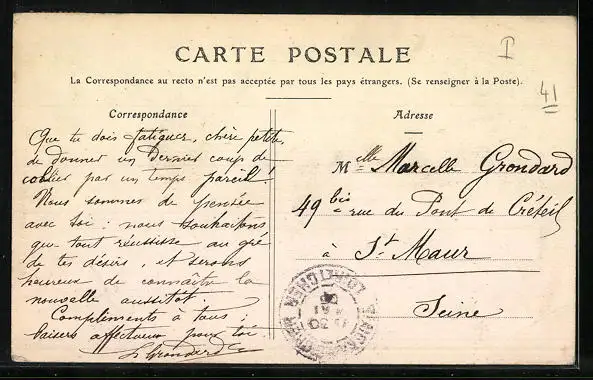 CARTE POSTALE
I
La Correspondance au recto n'est pas acceptée par tous les pays étrangers. (Se renseigner à la Poste).
41
Correspondance
Que tu dois fatiguer, chère petite,
de donner un dernier coup de
collier par un temps pareil!
Nous sommes de pensée
avec toi : nous souhaitons
que tout réussisse au gré
de tes désirs, et serons
heureux de connaître la
nouvelle aussitôt.
Compliments à tous ;
baisers affectueux pour toi.
Grondard
Adresse
Melle Marcelle Grondard
49 bis rue du Pont de Créteil
à St Maur
Seine
LOIR-ET-CHER